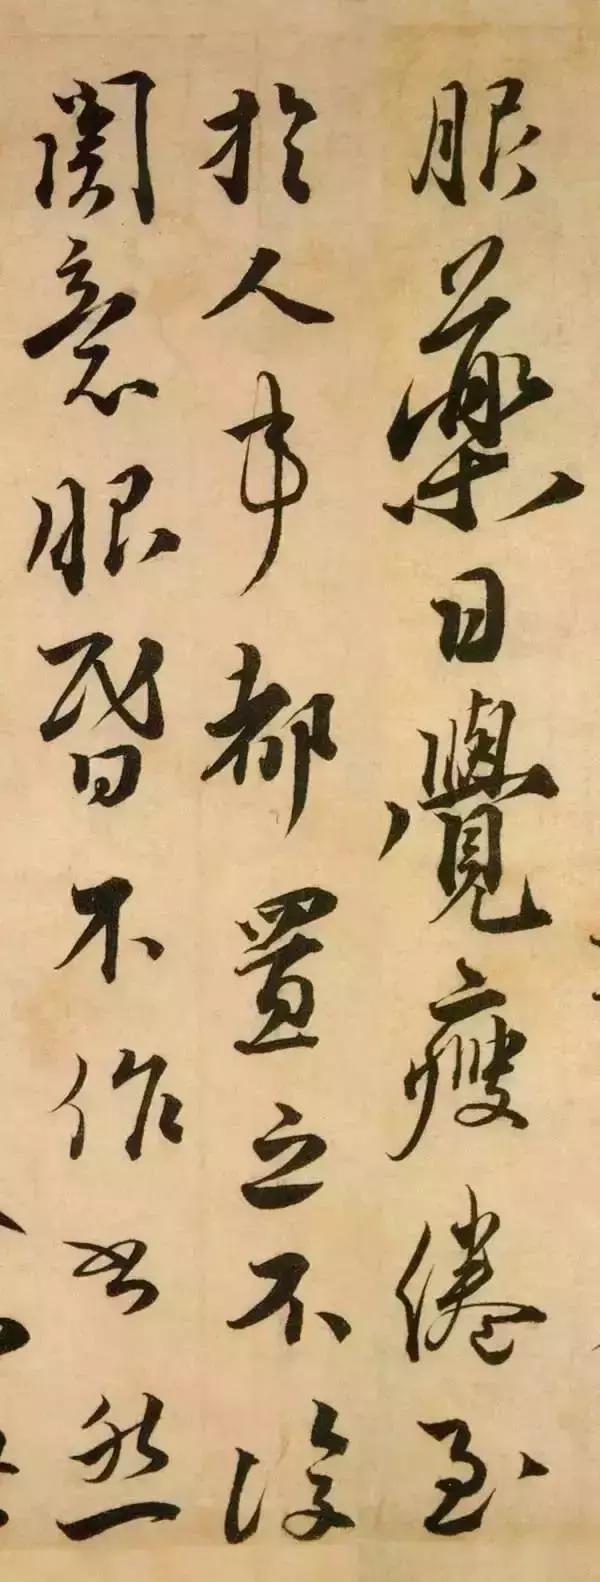 服藥日覺瘦倦至
於人事都置之不復
關意眼昏不作書然